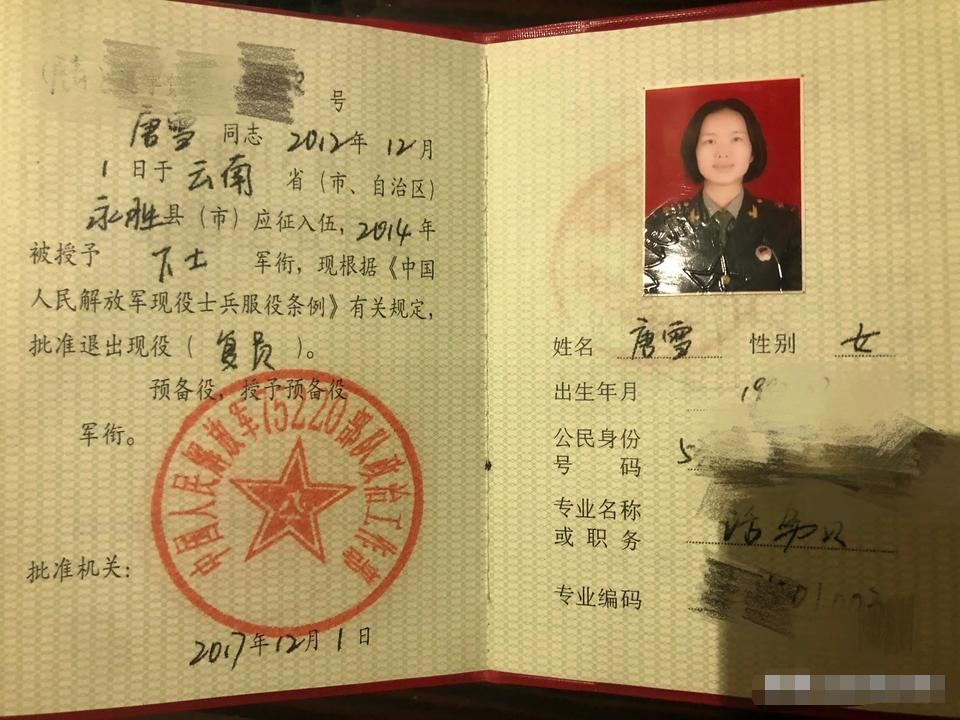 号
唐雪 同志 2012年 12月
1 日于 云南 省（市、自治区）
永胜县（市）应征入伍，2014年
被授予 下士 军衔，现根据《中国
人民解放军现役士兵服役条例》有关规定，
批准退出现役（ 复员 ）。
预备役，授予预备役
军衔。
中国人民解放军75220部队政治工作部
批准机关：
2017年12月1日
姓名 唐雪 性别 女
出生年月 19
公民身份
号 码 5
专业名称
或 职 务
专业编码